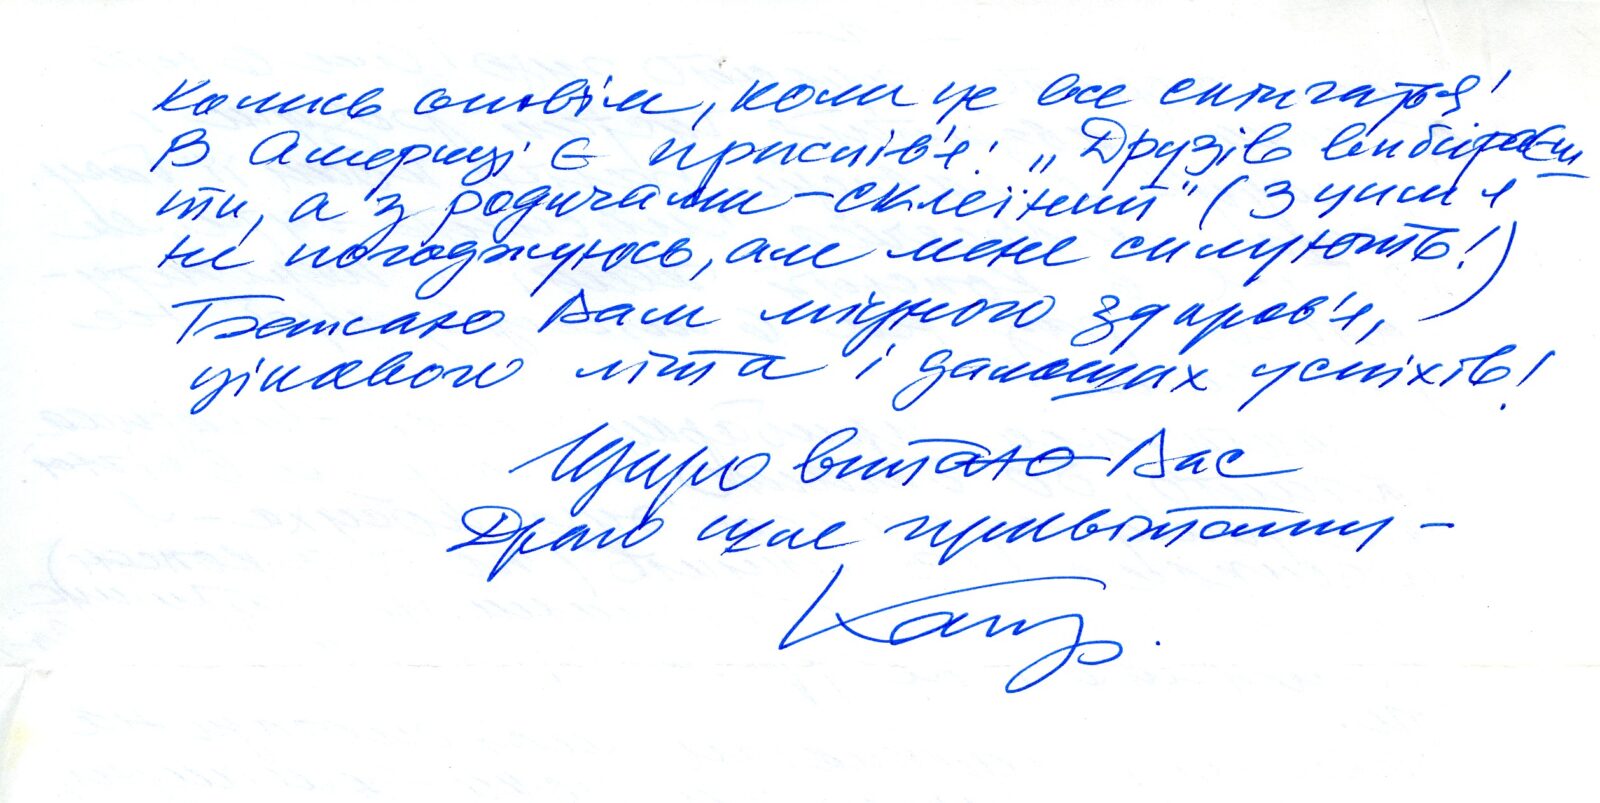 колись оповім, коли це все скінчиться!
В Америці є прислів'є: „Друзів вибираєш
ти, а з родичами – склеїний" (З цим я
не погоджуюсь, але мене силують!)
Бажаю Вам міцного здоров'я,
цікавого літа і дальших успіхів!
Щиро вітаю Вас
Драго шле привітання –